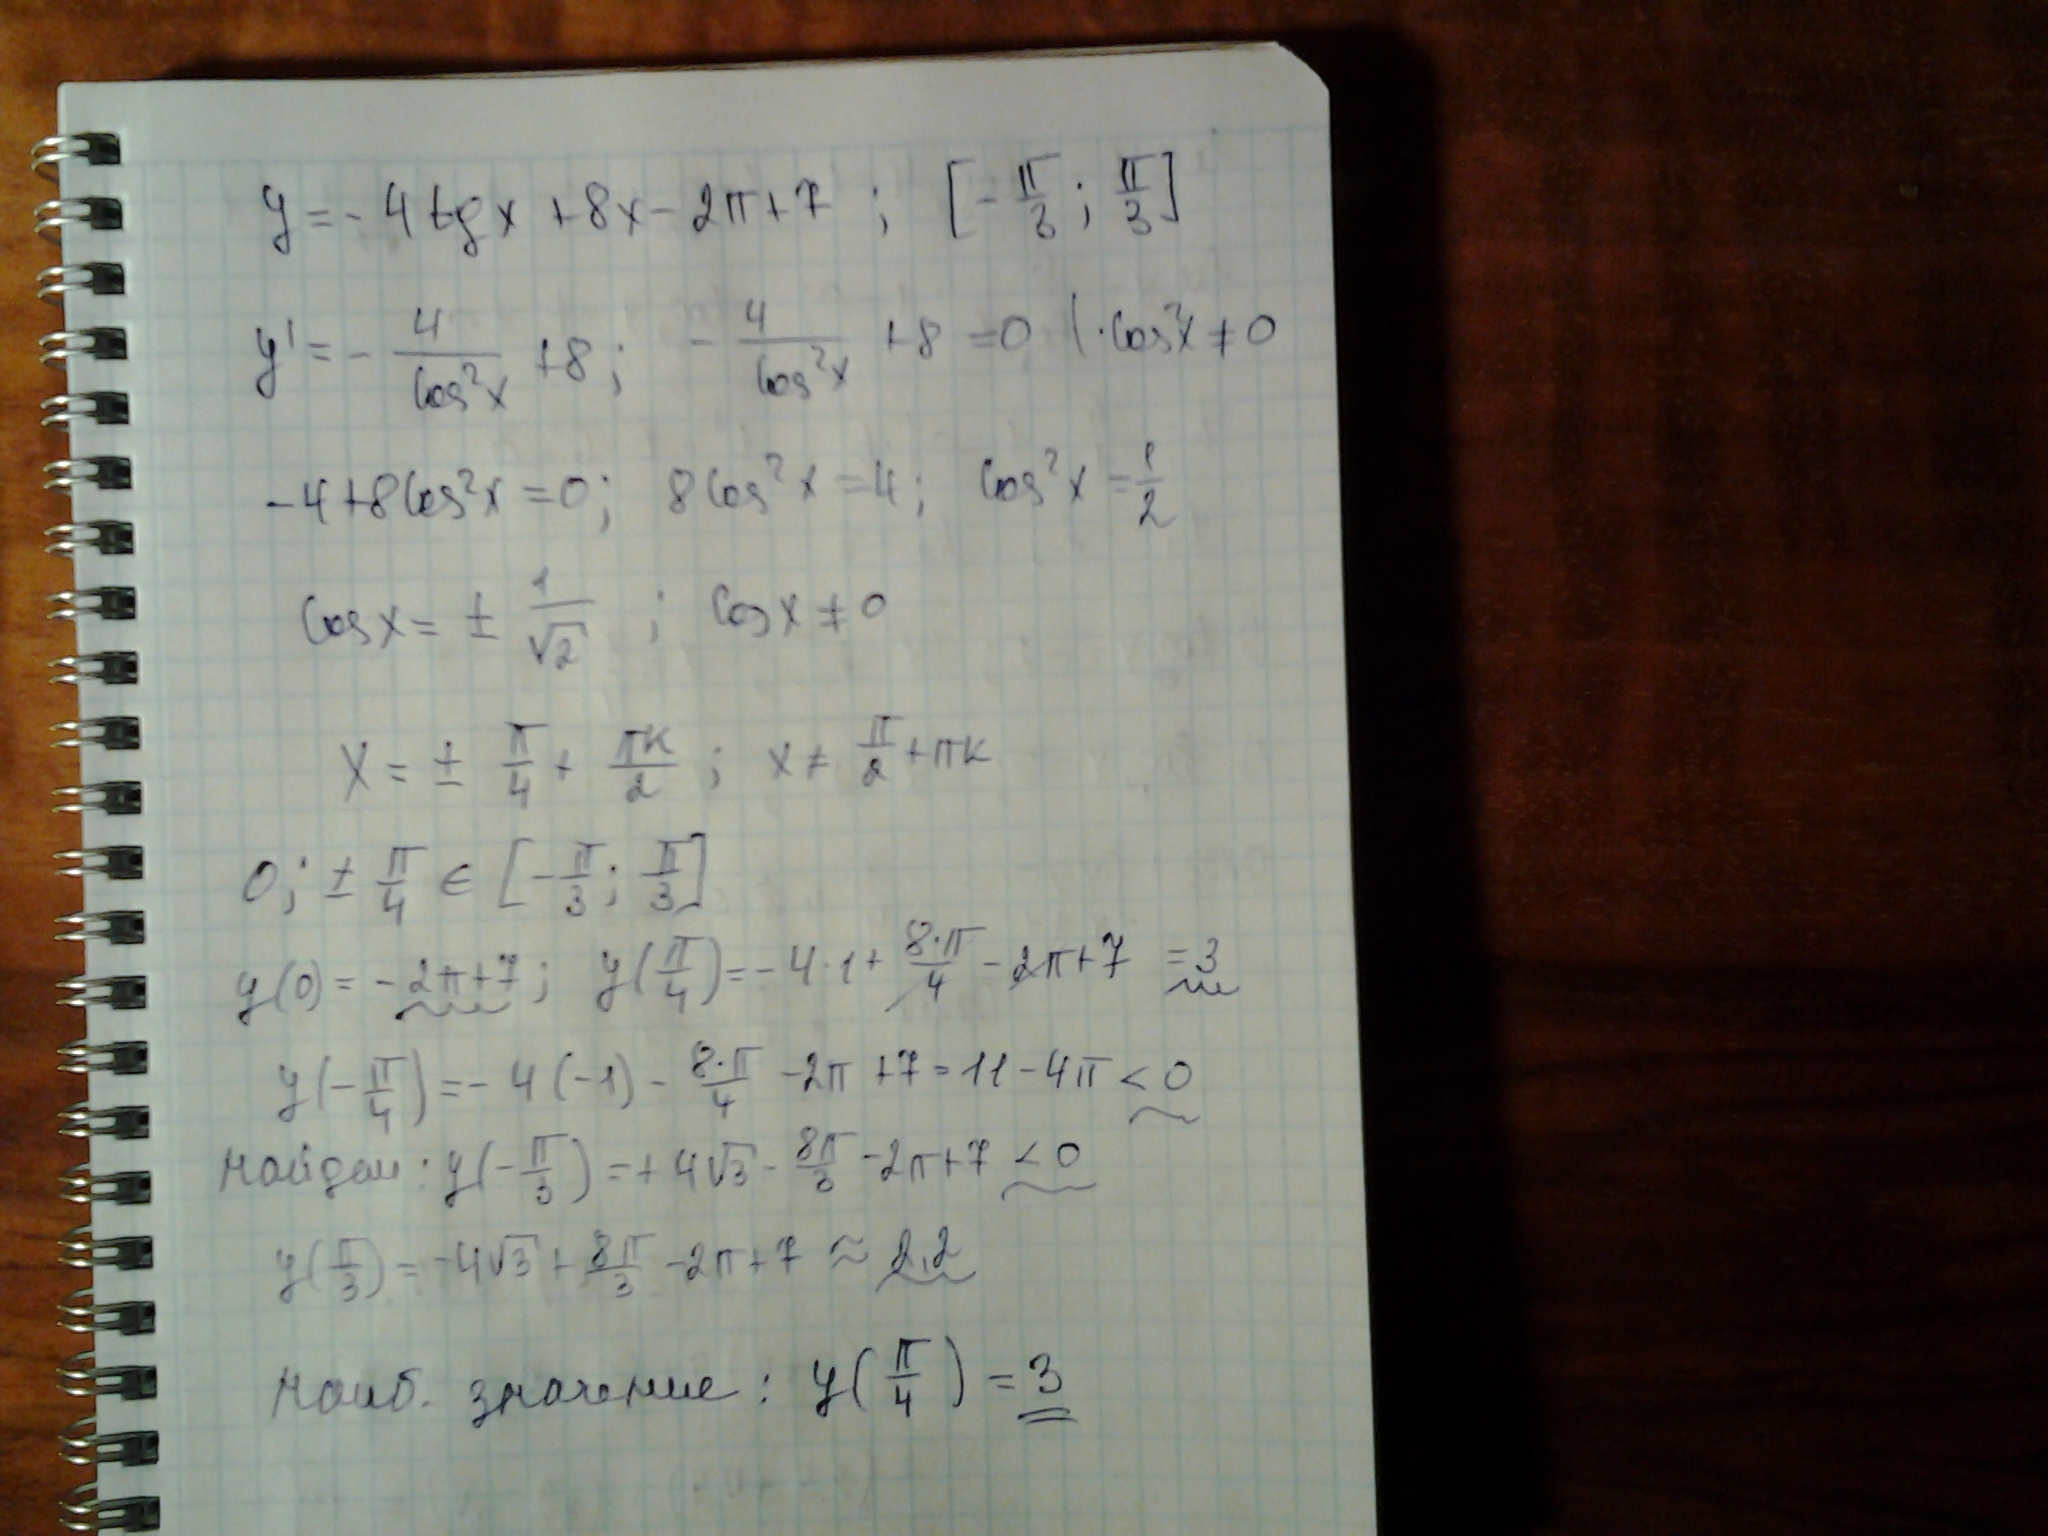 y = -4tgx + 8x - 2π + 7 ; [-π/3 ; π/3]
y' = -4/cos²x + 8 ; -4/cos²x + 8 = 0 |·cos²x ≠ 0
-4 + 8cos²x = 0 ; 8cos²x = 4 ; cos²x = 1/2
cosx = ± 1/√2 ; cosx ≠ 0
x = ± π/4 + πk/2 ; x ≠ π/2 + πk
0 ; ± π/4 ∈ [-π/3 ; π/3]
y(0) = -2π+7 ; y(π/4) = -4·1 + 8·π/4 - 2π + 7 = 3
y(-π/4) = -4(-1) - 8·π/4 - 2π + 7 = 11 - 4π < 0
найдем: y(-π/3) = +4√3 - 8π/3 - 2π + 7 < 0
y(π/3) = -4√3 + 8π/3 - 2π + 7 ≈ 2,2
наиб. значение : y(π/4) = 3